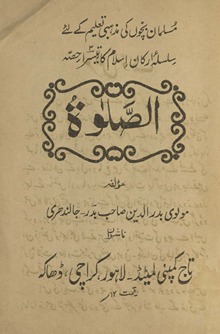 مسلمان بچوں کی مذہبی تعلیم کے لئے
سلسلۂ ارکان اسلام کا تیسرا حصہ
الصلوٰۃ
مؤلفہ
مولوی بدرالدین صاحب بدر۔ جالندھری
ناشران
تاج کمپنی لمیٹڈ۔ لاہور، کراچی، ڈھاکہ
قیمت ۱۲؍